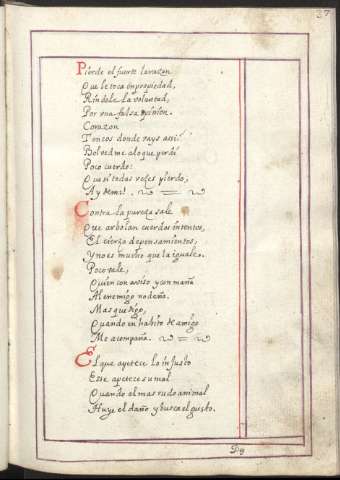 37
Pierde el fuerte la razon
Que le toca en propiedad,
Rindele la voluntad,
Por vna falsa opinion.
Corazon
Toricos donde vays assi?
Bolvedme a lo que perdi
Poco cuerdo:
Que si todas vezes pierdo,
Ay de mi!
Contra la pureza sale
Que arbolan cuerdos intentos,
El cierzo de pensamientos,
Y no es mucho que la iguale.
Poco vale,
Quien con aviso y con maña
Al enemigo no daña.
Mas que digo,
Quando en habito de amigo
Me acompaña.
El que apetece lo injusto
Este apetece su mal
Quando el mas rudo animal
Huye el daño, y busca el gusto.